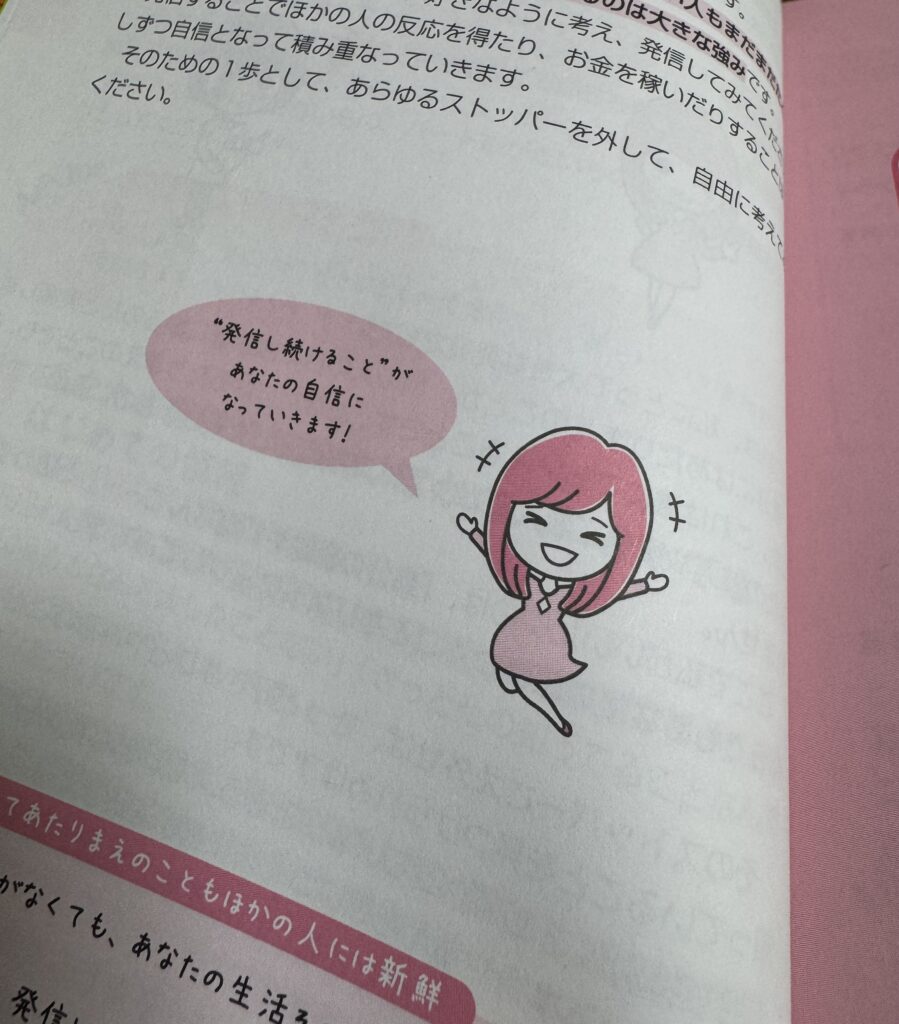 人もまだまだ
のは大きな強みです。
好きなように考え、発信してみてくだ
発信することでほかの人の反応を得たり、お金を稼いだりすること
しずつ自信となって積み重なっていきます。
そのための１歩として、あらゆるストッパーを外して、自由に考えて
ください。
“発信し続けること”が
あなたの自信に
なっていきます!
てあたりまえのこともほかの人には新鮮
がなくても、あなたの生活
発信